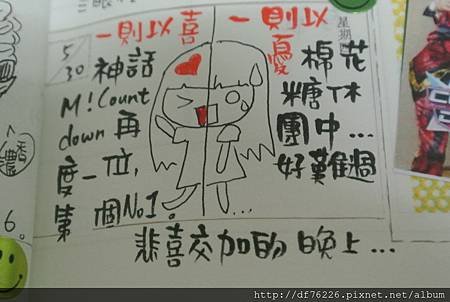 一則以喜
5/30
神話
M! Count
down 再
度一位,
第 個No1。
一則以
憂
星期
棉花
糖休
團中...
好難過
...
悲喜交加的晚上...
6。
http://df76226.pixnet.net/album